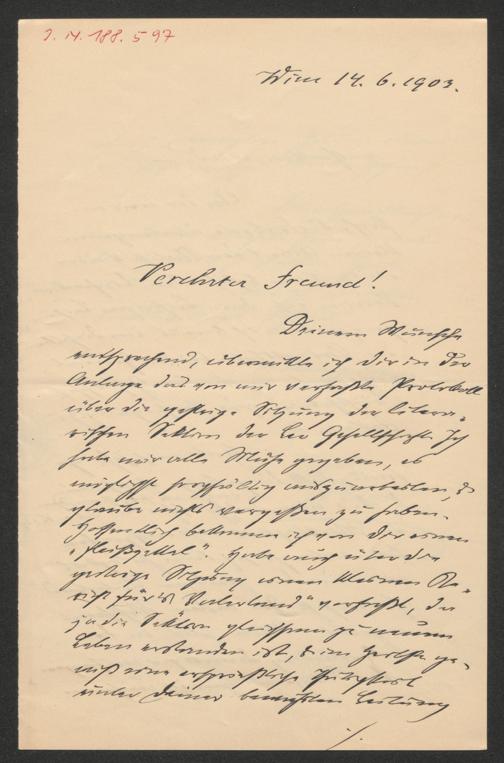 I. N. 188.597
Wien 14. 6. 1903.
Verehrter Freund!
Deinem Wunsche
entsprechend, übermittle ich Dir in der
Anlage das von mir verfaßte Protokoll
über die gestrige Sitzung der litera-
rischen Sektion der Leo Gesellschaft. Ich
habe mir alle Mühe gegeben, es
möglichst sorgfältig auszuarbeiten, &
glaube nichts vergessen zu haben.
Hoffentlich bekomme ich von Dir einen
„Fleißzettel". Habe auch über die
gestrige Sitzung einen kleinen Be-
richt für's „Vaterland" verfaßt, da
ja die Sektion gleichsam zu neuem
Leben erstanden ist, & im Herbste ge-
wiß eine ersprießliche Thätigkeit
unter Deiner bewährten Leitung
./.